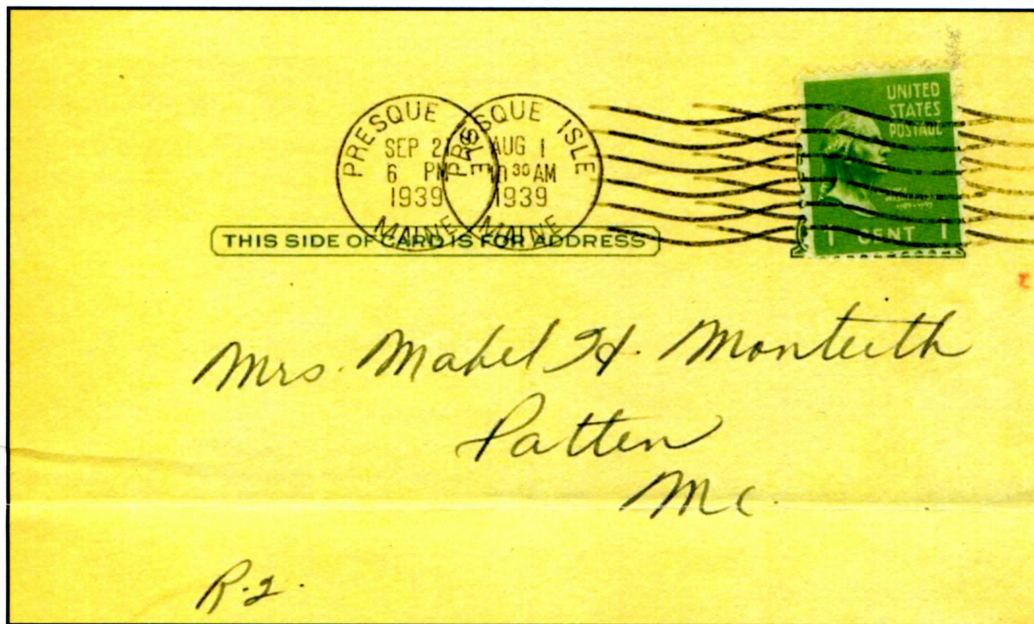 PRESQUE ISLE
SEP 21
6 PM
1939
MAINE
PRESQUE ISLE
AUG 1
1939
MAINE
UNITED
STATES
POSTAGE
1 CENT 1
THIS SIDE OF CARD IS FOR ADDRESS
Mrs. Mabel H. Monteith
Patten
Me.
R.2.